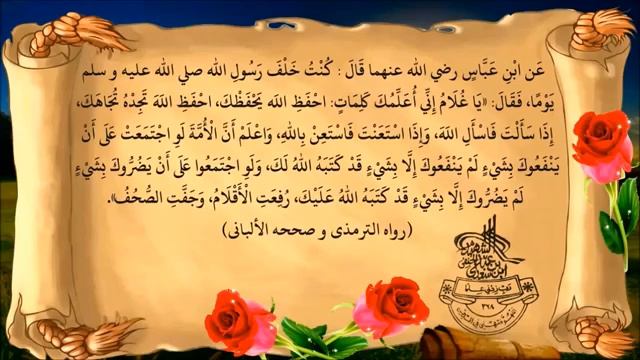 عَن ابْنِ عَبَّاسٍ رضي الله عنهما قَالَ : كُنْتُ خَلْفَ رَسُولِ الله صلي الله عليه و سلم
يَوْمًا، فَقَالَ: «يَا غُلَامُ إِنِّي أُعَلِّمُكَ كَلِمَاتٍ: احْفَظِ اللهَ يَحْفَظْكَ، احْفَظِ اللهَ تَجِدْهُ تُجَاهَكَ،
إِذَا سَأَلْتَ فَاسْأَلِ اللهَ، وَإِذَا اسْتَعَنْتَ فَاسْتَعِنْ بِاللهِ، وَاعْلَمْ أَنَّ الْأُمَّةَ لَوِ اجْتَمَعَتْ عَلَى أَنْ
يَنْفَعُوكَ بِشَيْءٍ لَمْ يَنْفَعُوكَ إِلَّا بِشَيْءٍ قَدْ كَتَبَهُ اللهُ لَكَ، وَلَوِ اجْتَمَعُوا عَلَى أَنْ يَضُرُّوكَ بِشَيْءٍ
لَمْ يَضُرُّوكَ إِلَّا بِشَيْءٍ قَدْ كَتَبَهُ اللهُ عَلَيْكَ، رُفِعَتِ الْأَقْلَامُ، وَجَفَّتِ الصُّحُفُ».
(رواه الترمذى و صححه الألبانى)